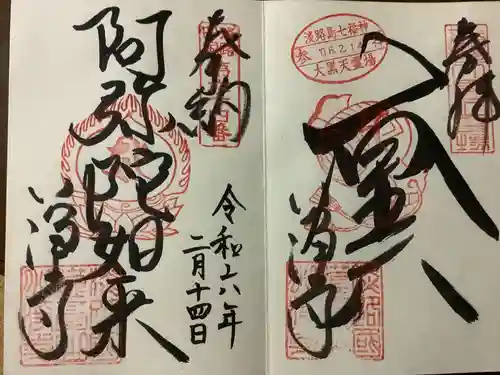 奉拝
淡路島七福神
06.2.14
大黒天霊場
大黒天
八浄寺
奉納
令和六年
二月十四日
阿弥陀如来
八浄寺